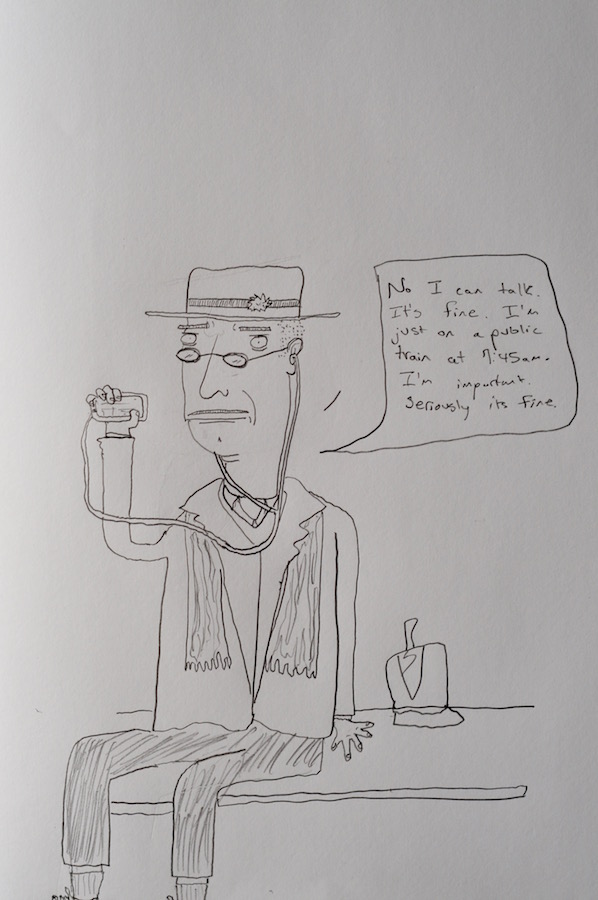 No I can talk.
It's fine. I'm
just on a public
train at 7:45am.
I'm important.
Seriously its fine.